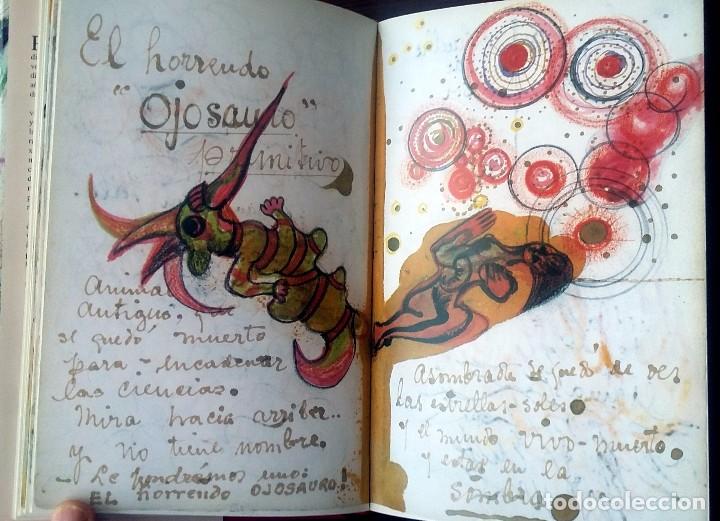 El horrendo
"Ojosauro"
primitivo
Animal
antiguo, que
se quedó muerto
para-encadenar
las ciencias.
Mira hacia arriba..
y no tiene nombre.
- Le pondremos uno:
EL horrendo OJOSAURO!
Asombrada se quedó de ver
las estrellas-soles
y el mundo vivo-muerto
y estar en la
sombra
todocoleccion